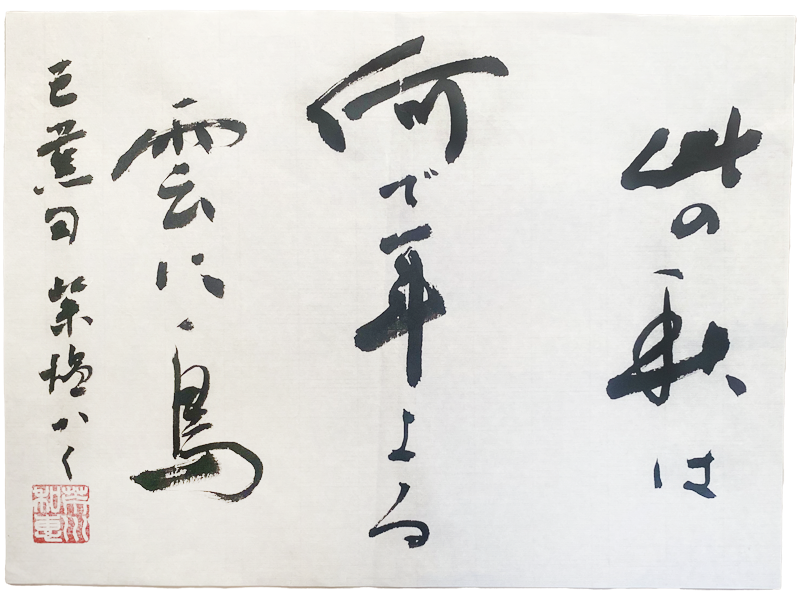 此の秋は
何で年よる
雲に鳥
芭蕉句 かく